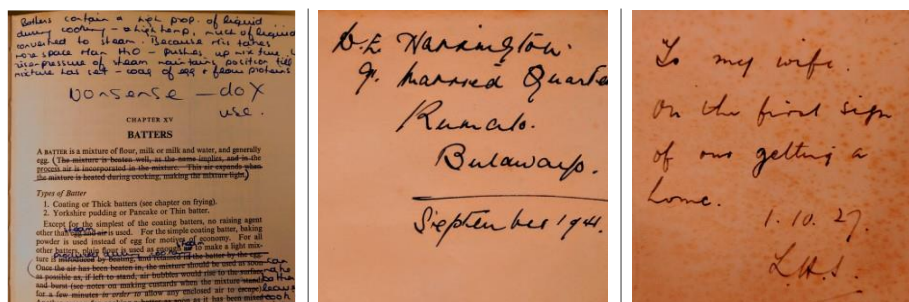 Batters contain a high prop. of liquid
during cooking - a high temp, much of liquid
converted to steam. Because this takes
more space than H2O - pushes up mixture,
rise - pressure of steam maintains position till
mixture has set - coag of egg & flour proteins
nonsense - do X
use.
CHAPTER XV
BATTERS
A BATTER is a mixture of flour, milk or milk and water, and generally
egg. (The mixture is beaten well, as the name implies, and in the
process air is incorporated in the mixture. This air expands when
the mixture is heated during cooking, making the mixture light.)
Types of Batter
1. Coating or Thick batters (see chapter on frying).
2. Yorkshire pudding or Pancake or Thin batter.
Except for the simplest of the coating batters, no raising agent
steam
other than egg and air is used. For the simple coating batter, baking
powder is used instead of egg for motives of economy. For all
other batters, plain flour is used as enough to make a light mix-
ture is introduced by beating, and retained in the batter by the egg.
Once the air has been beaten in, the mixture should be used as soon
as possible as, if left to stand, air bubbles would rise to the surface
and burst (see notes on making custards when the mixture stands
for a few minutes in order to allow any enclosed air to escape)
D. E. Harrington.
9. Married Quarte
Kumalo.
Bulawayo.
September 1941.
To my wife.
on the first sign
of our getting a
home.
1.10.27.
L.H.S.